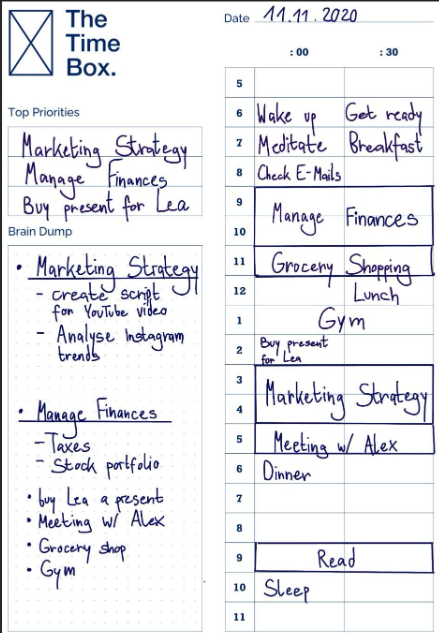 The
Time
Box.
Date 11.11.2020
:00 :30
Top Priorities
Marketing Strategy
Manage Finances
Buy present for Lea
Brain Dump
• Marketing Strategy
- create script
for YouTube video
- Analyse Instagram
trends
• Manage Finances
- Taxes
- Stock portfolio
• buy Lea a present
• Meeting w/ Alex
• Grocery shop
• Gym
5
6 Wake up Get ready
7 Meditate Breakfast
8 Check E-Mails
9
Manage Finances
10
11 Grocery Shopping
12 Lunch
1 Gym
2 Buy present
for Lea
3
Marketing Strategy
4
5 Meeting w/ Alex
6 Dinner
7
8
9 Read
10 Sleep
11